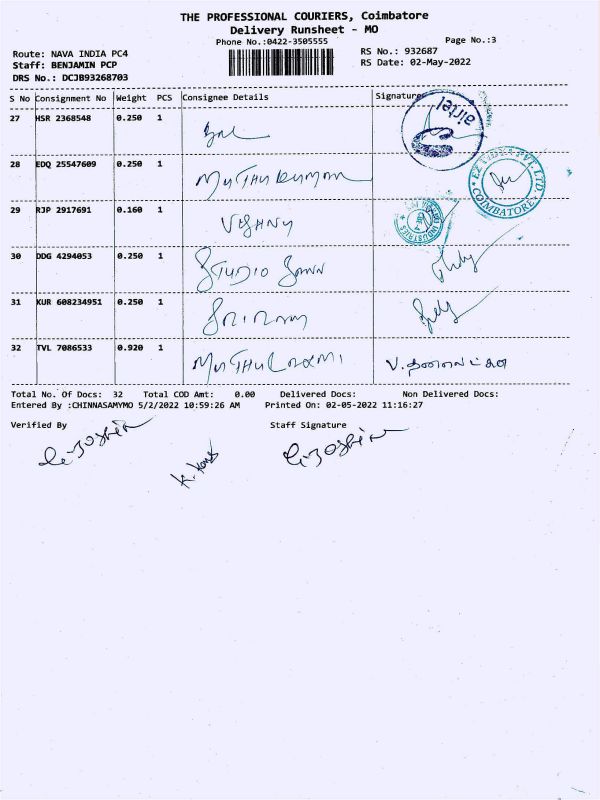 THE PROFESSIONAL COURIERS, Coimbatore
Delivery Runsheet - MO
Phone No.:0422-3505555
Page No.:3
Route: NAVA INDIA PC4
RS No.: 932687
Staff: BENJAMIN PCP
RS Date: 02-May-2022
DRS No.: DCJB93268703
S No Consignment No Weight PCS Consignee Details Signature
airtel
27 HSR 2368548 0.250 1
28 EDQ 25547609 0.250 1 MUTHUKUMAR
PVT. LTD. COIMBATORE
29 RJP 2917691 0.160 1 VISHNU
INDUSTRIES
30 DDG 4294053 0.250 1 STUDIO
31 KUR 608234951 0.250 1 SRIRAM
32 TVL 7086533 0.920 1 MUTHULAXMI
Total No. Of Docs: 32 Total COD Amt: 0.00 Delivered Docs: Non Delivered Docs:
Entered By :CHINNASAMYMO 5/2/2022 10:59:26 AM Printed On: 02-05-2022 11:16:27
Verified By Staff Signature